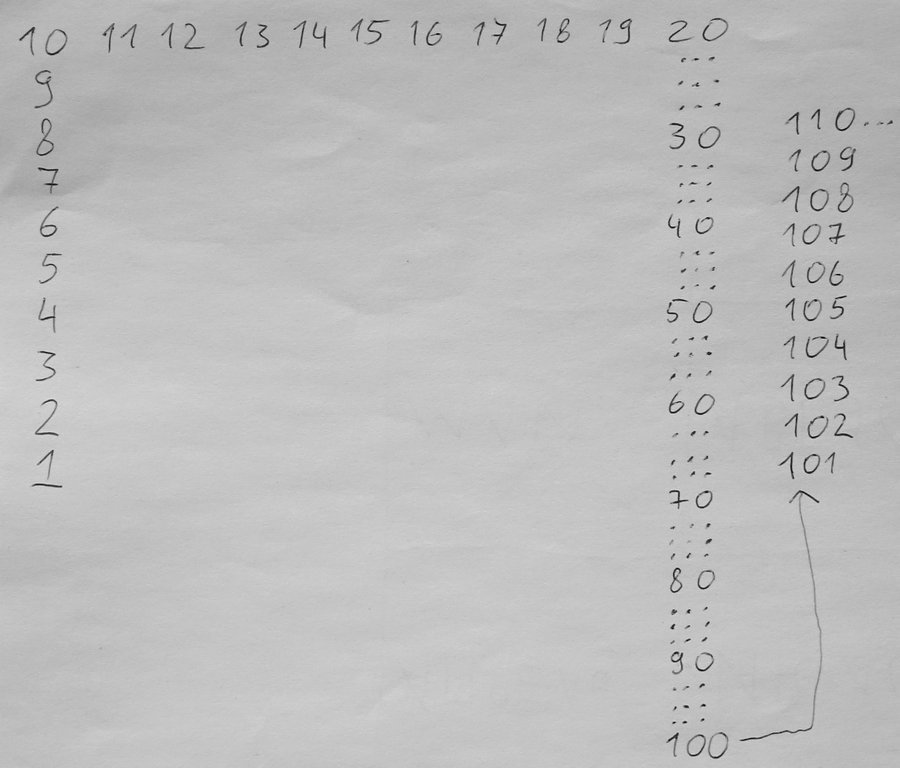 10 11 12 13 14 15 16 17 18 19 20
9
8
7
6
5
4
3
2
1
...
...
...
30
...
...
...
40
...
...
...
50
...
...
...
60
...
...
...
70
...
...
...
80
...
...
...
90
...
...
...
100
101
102
103
104
105
106
107
108
109
110...